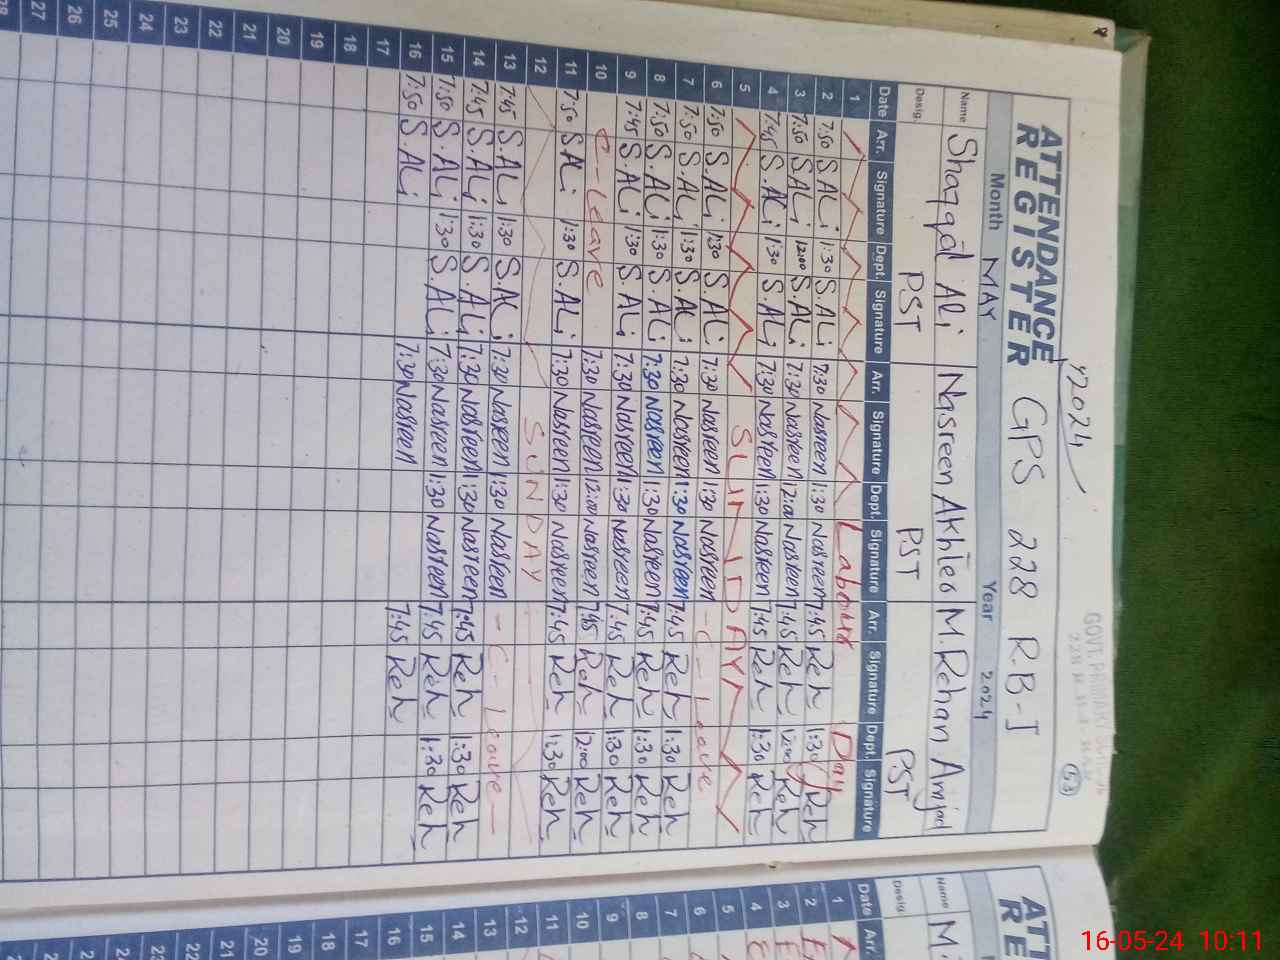 2024
GOVT. PRIMARY
53
ATTENDANCE REGISTER GPS 228 R.B-I
Month MAY Year 2024
Name Shaqqd Ali Nasreen Akhter M. Rehan Amjad
Desig. PST PST PST
Date Arr. Signature Dept. Signature Arr. Signature Dept. Signature Arr. Signature Dept. Signature
1 Labour Day
2 7:50 S.ALi 1:30 S.ALi 7:30 Nasreen 1:30 Nasreen 7:45 Reh 1:30 Reh
3 7:50 S.ALi 12:00 S.ALi 7:30 Nasreen 12:00 Nasreen 7:45 Reh 12:00 Reh
4 7:45 S.ALi 1:30 S.ALi 7:30 Nasreen 1:30 Nasreen 7:45 Reh 1:30 Reh
5 SUNDAY
6 7:50 S.ALi 1:30 S.ALi 7:30 Nasreen 1:30 Nasreen - C - Leave
7 7:50 S.ALi 1:30 S.ALi 7:30 Nasreen 1:30 Nasreen 7:45 Reh 1:30 Reh
8 7:50 S.ALi 1:30 S.ALi 7:30 Nasreen 1:30 Nasreen 7:45 Reh 1:30 Reh
9 7:45 S.ALi 1:30 S.ALi 7:30 Nasreen 1:30 Nasreen 7:45 Reh 1:30 Reh
10 C-Leave 7:30 Nasreen 12:00 Nasreen 7:45 Reh 12:00 Reh
11 7:50 S.ALi 1:30 S.ALi 7:30 Nasreen 1:30 Nasreen 7:45 Reh 1:30 Reh
12 SUNDAY
13 7:45 S.ALi 1:30 S.ALi 7:30 Nasreen 1:30 Nasreen - C - Leave -
14 7:45 S.ALi 1:30 S.ALi 7:30 Nasreen 1:30 Nasreen 7:45 Reh 1:30 Reh
15 7:50 S.ALi 1:30 S.ALi 7:30 Nasreen 1:30 Nasreen 7:45 Reh 1:30 Reh
16 7:50 S.ALi 7:30 Nasreen 7:45 Reh
17
18
19
20
21
22
23
24
25
26
27
28
ATT
RE
Name M.
Desig.
Date Arr.
1
2
3
4
5
6
7
8
9
10
11
12
13
14
15
16
17
18
19
20
21
22
23
24
16-05-24 10:11